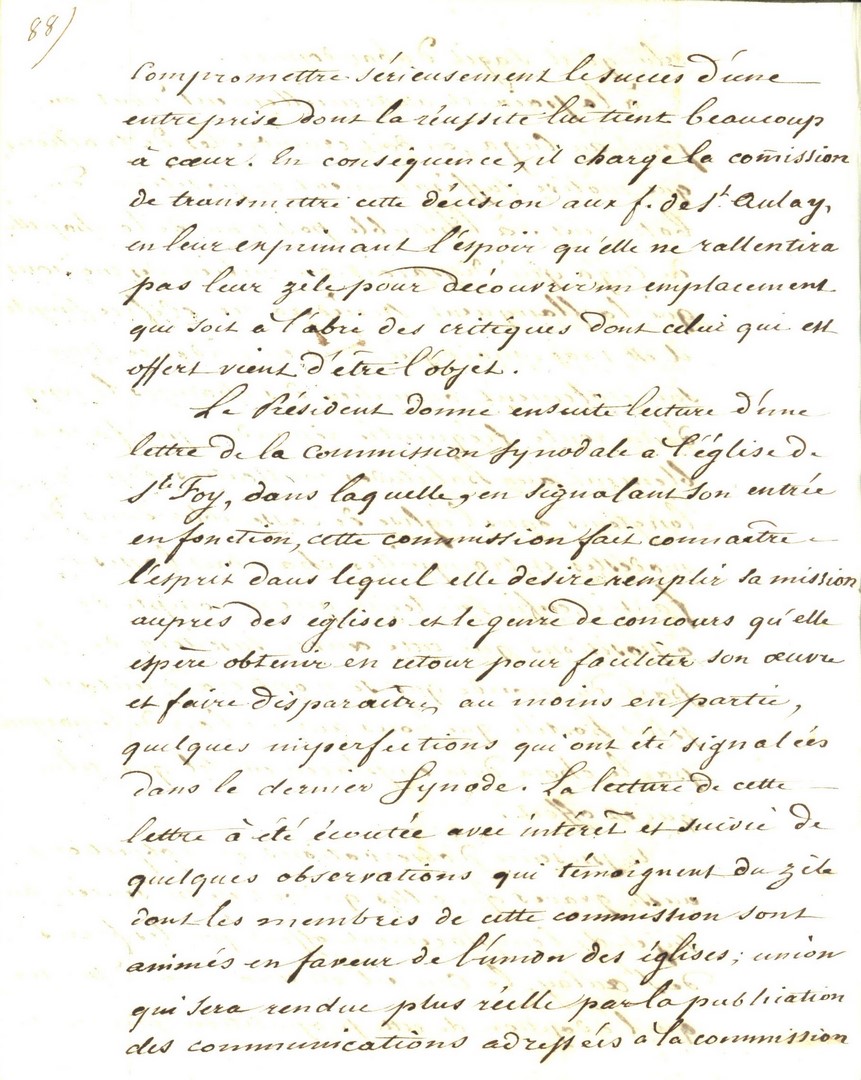 88)
compromettre sérieusement le succès d'une
entreprise dont la réussite lui tient beaucoup
à cœur. En conséquence, il charge la com̄ission
de transmettre cette décision aux f. de St Aulay,
en leur exprimant l'espoir qu'elle ne rallentira
pas leur zèle pour découvrir un emplacement
qui soit à l'abri des critiques dont celui qui est
offert vient d'être l'objet.
Le Président donne ensuite lecture d'une
lettre de la Commission Synodale à l'église de
Ste Foy, dans laquelle, en signalant son entrée
en fonction, cette commission fait connaître
l'esprit dans lequel elle desire remplir sa mission
auprès des églises et le genre de concours qu'elle
espère obtenir en retour pour faciliter son œuvre
et faire disparaître, au moins en partie,
quelques imperfections qui ont été signalées
dans le dernier Synode. La lecture de cette
lettre à été écoutée avec intérêt et suivie de
quelques observations qui témoignent du zèle
dont les membres de cette commission sont
animés en faveur de l'union des églises; union
qui sera rendue plus réelle par la publication
des communications adressées à la commission